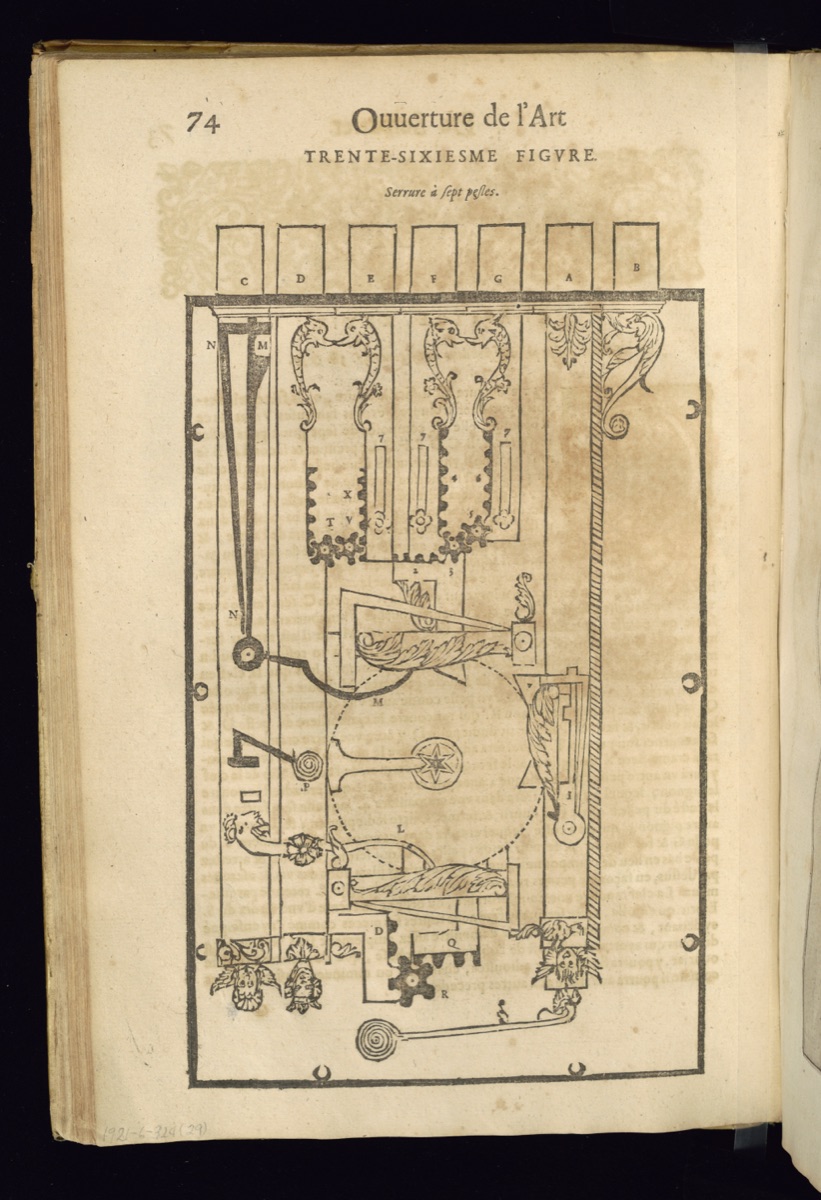 74
Ouuerture de l'Art
TRENTE-SIXIESME FIGVRE.
Serrure à sept pesles.
C D E F G A B
N M
7 7 7
X
T V 5
2 3
N
M
P
I
L
D
Q
R
1921-6-324(29)